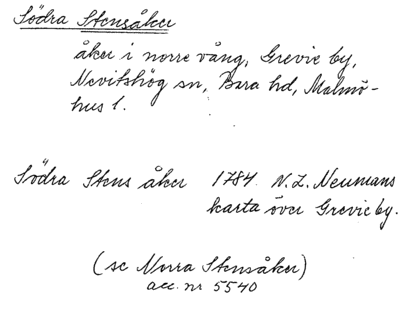 Södra Stensåker
åker i norre vång, Grevie by,
Nevitshög sn, Bara hd, Malmö-
hus l.
Södra Stens åker 1784. N. L. Neumans
karta över Grevie by.
(se Norra Stensåker)
acc. nr 5540